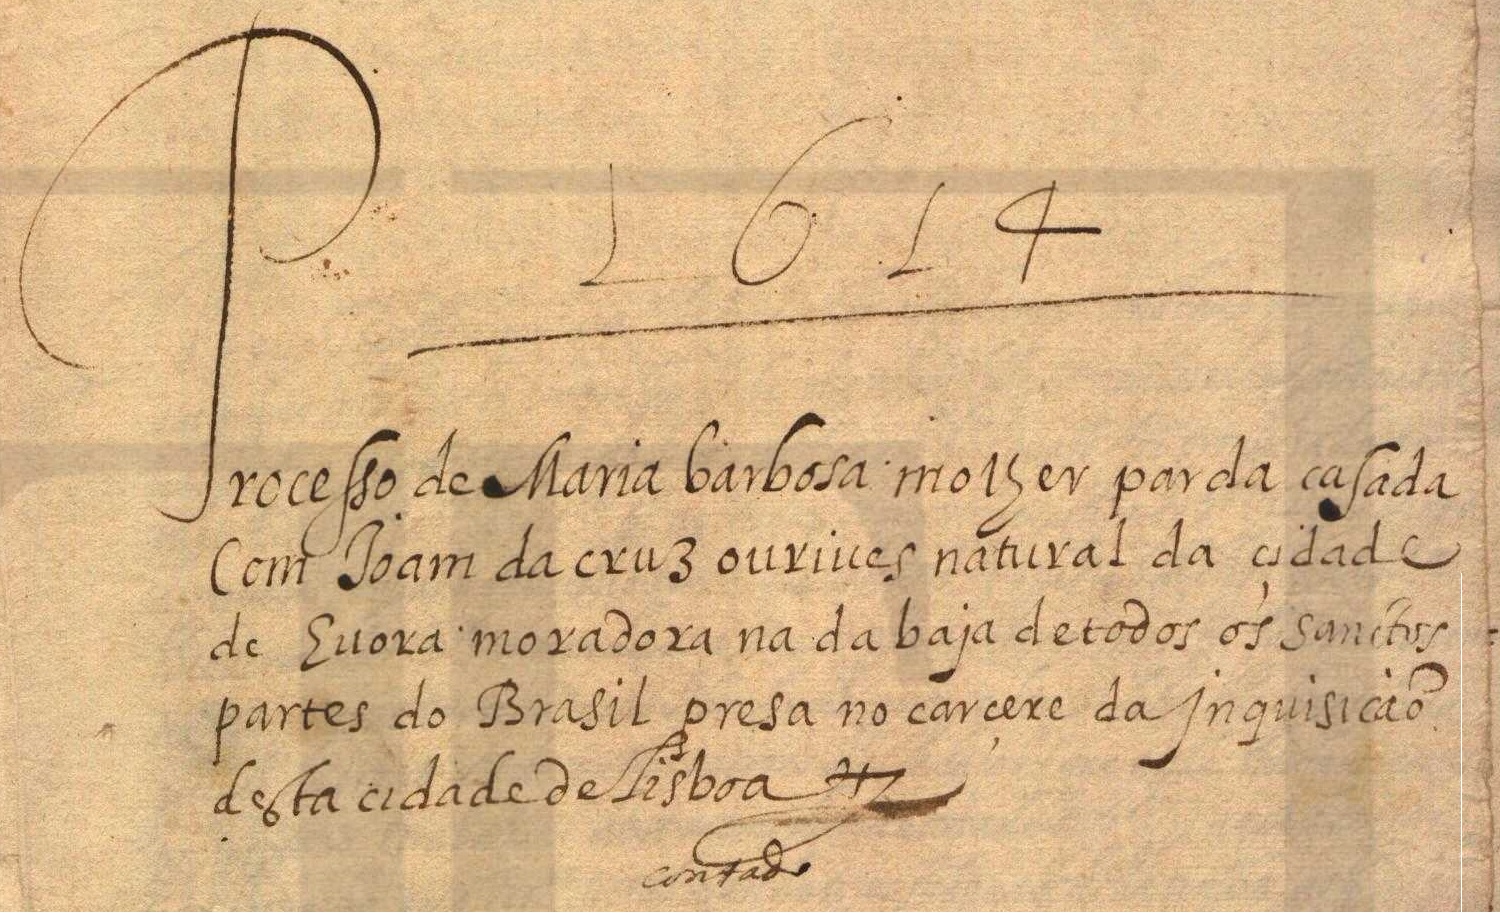 1614
Processo de Maria barbosa molher parda casada
Com Joam da cruz ouriues natural da cidade
de Euora moradora na da baja de todos os sanctos
partes do Brasil presa no carçere da Inquisicaõ
desta cidade de Lisboa
contado